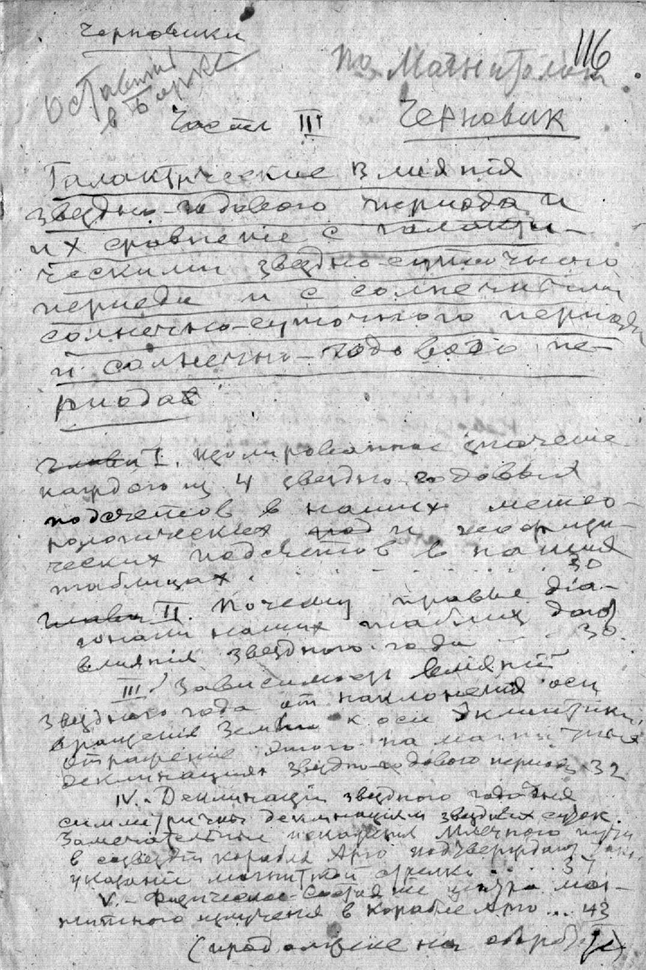 Черновики
116
Оставить
в Борке
по Магнитологии
Часть III Черновик
Галактические влияния
звездно-годового периода и
их сравнение с галакти-
ческими звездно-суточного
периода и с солнечными
солнечно-суточного периода
и солнечно-годового пе-
риодов
Глава I. Изолированное значение
каждого из 4 звездно-годовых
подсчетов в наших метео-
рологических и геофизи-
ческих подсчетов в наших
таблицах . . . . . 30
Глава II. Почему правые диа-
гонали наших таблиц дают
влияния звездного года . . . 30.
III. Зависимость влияний
звездного года от наклонения оси
вращения Земли к оси Эклиптики,
отражение этого на магнитных
деклинациях звездно-годового периода 32
IV. - Деклинации звездного года
симметричны деклинациям звездных суток.
Замечательные искажения Млечного пути
в созвездии корабля Арго подтверждают
указания магнитной стрелки . . . 37
V. - Физическое состояние центра маг-
нитного излучения в Корабле Арго ... 43
(продолжение на обороте)